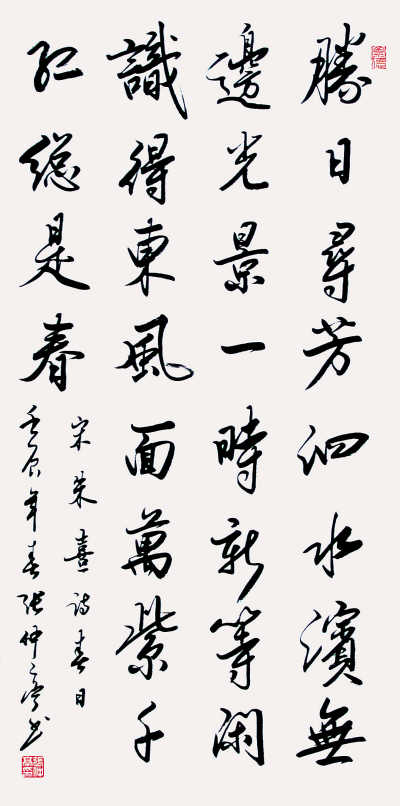 勝日尋芳泗水濱無
邊光景一時新等閑
識得東風面萬紫千
紅總是春
宋朱熹詩春日
壬辰年春張仲亭書